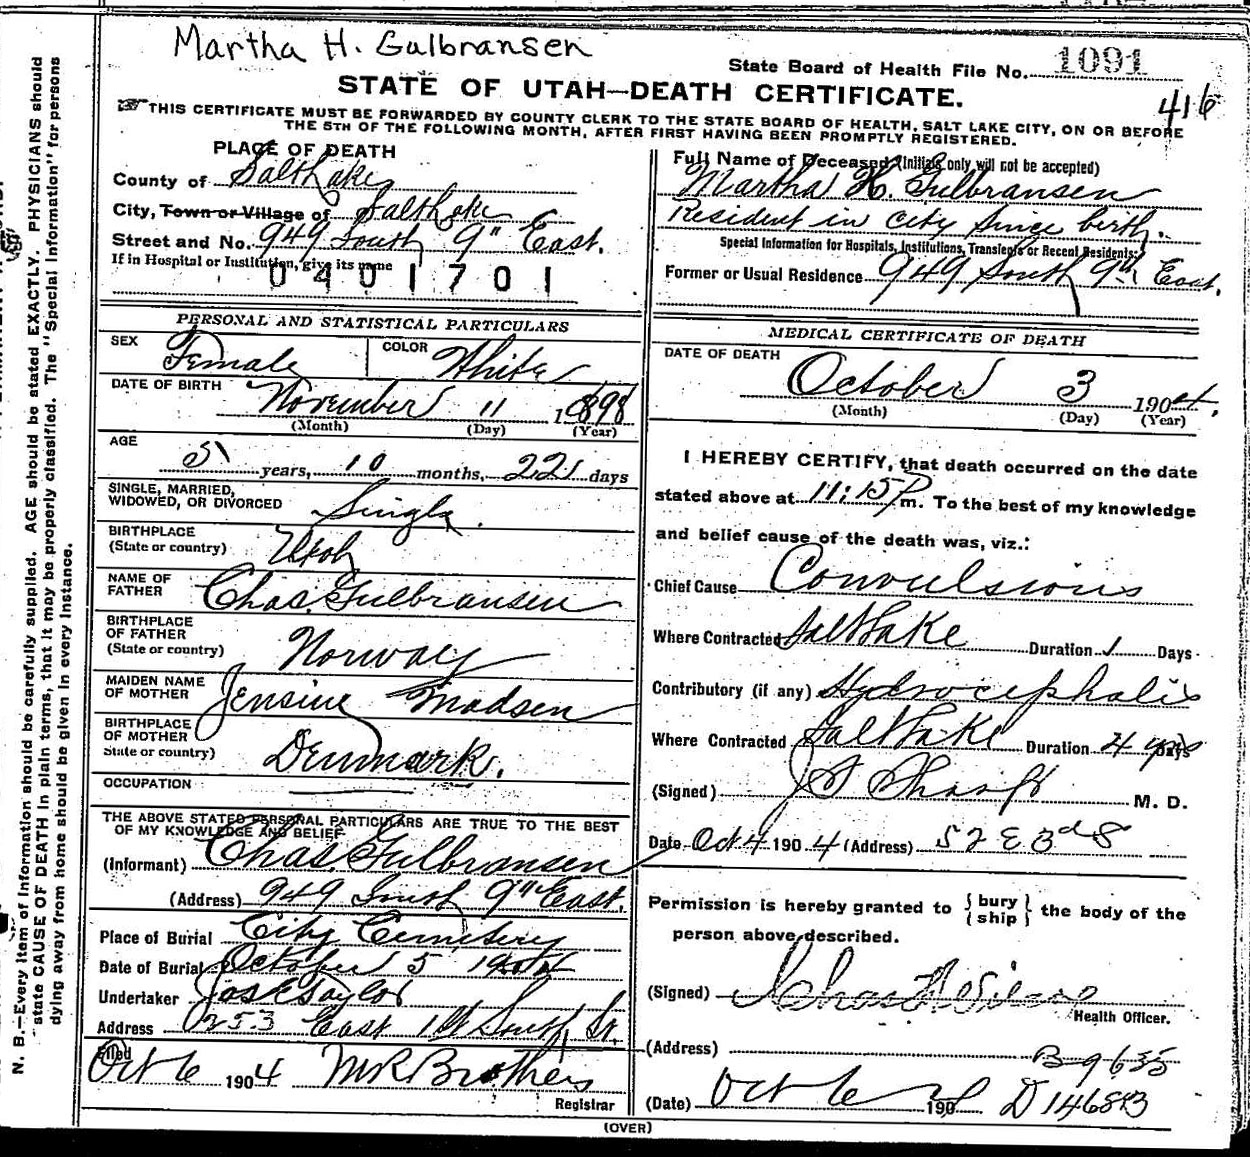 Martha H. Gulbransen
State Board of Health File No. 1091
416
STATE OF UTAH—DEATH CERTIFICATE.
THIS CERTIFICATE MUST BE FORWARDED BY COUNTY CLERK TO THE STATE BOARD OF HEALTH, SALT LAKE CITY, ON OR BEFORE
THE 5TH OF THE FOLLOWING MONTH, AFTER FIRST HAVING BEEN PROMPTLY REGISTERED.
PLACE OF DEATH
County of Salt Lake
City, Town or Village of Salt Lake
Street and No. 949 South 9" East.
If in Hospital or Institution, give its name
0401701
Full Name of Deceased (Initials only will not be accepted)
Martha H. Gulbransen
Resident in city since birth.
Special Information for Hospitals, Institutions, Transients or Recent Residents:
Former or Usual Residence 949 South 9th East.
PERSONAL AND STATISTICAL PARTICULARS
SEX Female COLOR White
DATE OF BIRTH November 11 1898
(Month) (Day) (Year)
AGE 5 years, 10 months, 22 days
SINGLE, MARRIED,
WIDOWED, OR DIVORCED Single.
BIRTHPLACE
(State or country) Utah
NAME OF
FATHER Chas. Gulbransen
BIRTHPLACE
OF FATHER
(State or country) Norway
MAIDEN NAME
OF MOTHER Jensine Madsen
BIRTHPLACE
OF MOTHER
State or country) Denmark.
OCCUPATION
THE ABOVE STATED PERSONAL PARTICULARS ARE TRUE TO THE BEST
OF MY KNOWLEDGE AND BELIEF
(Informant) Chas. Gulbransen
(Address) 949 South 9" East.
Place of Burial City Cemetery
Date of Burial October 5 1904
Undertaker Jos E Taylor
Address 253 East 1st South St.
Filed Oct 6 1904 M R Brothers
Registrar
MEDICAL CERTIFICATE OF DEATH
DATE OF DEATH
October 3 1904.
(Month) (Day) (Year)
I HEREBY CERTIFY, that death occurred on the date
stated above at 11:15 P m. To the best of my knowledge
and belief cause of the death was, viz.:
Chief Cause Convulsions
Where Contracted Salt Lake Duration 1 Days
Contributory (if any) Hydrocephalix
Where Contracted Salt Lake Duration 4 yrs Days
(Signed) J S Sharp M. D.
Date Oct 4 1904 (Address) 52 E 3d S
Permission is hereby granted to {bury
ship} the body of the
person above described.
(Signed)
Health Officer.
(Address) B-9635
(Date) Oct 6 190 D 146893
(OVER)
N. B.—Every item of information should be carefully supplied. AGE should be stated EXACTLY. PHYSICIANS should
state CAUSE OF DEATH in plain terms, that it may be properly classified. The "Special Information" for persons
dying away from home should be given in every instance.